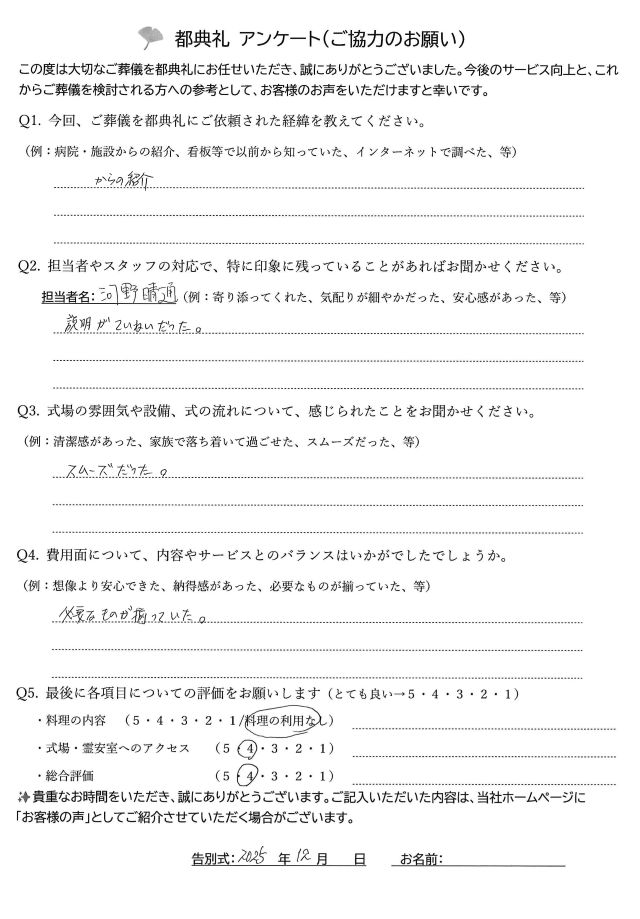 都典礼 アンケート(ご協力のお願い)
この度は大切なご葬儀を都典礼にお任せいただき、誠にありがとうございました。今後のサービス向上と、これ
からご葬儀を検討される方への参考として、お客様のお声をいただけますと幸いです。
Q1. 今回、ご葬儀を都典礼にご依頼された経緯を教えてください。
(例：病院・施設からの紹介、看板等で以前から知っていた、インターネットで調べた、等)
からの紹介
Q2. 担当者やスタッフの対応で、特に印象に残っていることがあればお聞かせください。
担当者名：河野晴通 (例：寄り添ってくれた、気配りが細やかだった、安心感があった、等)
説明がていねいだった。
Q3. 式場の雰囲気や設備、式の流れについて、感じられたことをお聞かせください。
(例：清潔感があった、家族で落ち着いて過ごせた、スムーズだった、等)
スムーズだった。
Q4. 費用面について、内容やサービスとのバランスはいかがでしたでしょうか。
(例：想像より安心できた、納得感があった、必要なものが揃っていた、等)
必要なものが揃っていた。
Q5. 最後に各項目についての評価をお願いします（とても良い→5・4・3・2・1）
・料理の内容 （5・4・3・2・1/料理の利用なし）
・式場・霊安室へのアクセス （5・4・3・2・1）
・総合評価 （5・4・3・2・1）
貴重なお時間をいただき、誠にありがとうございます。ご記入いただいた内容は、当社ホームページに
「お客様の声」としてご紹介させていただく場合がございます。
告別式：2025 年 12 月 日 お名前：